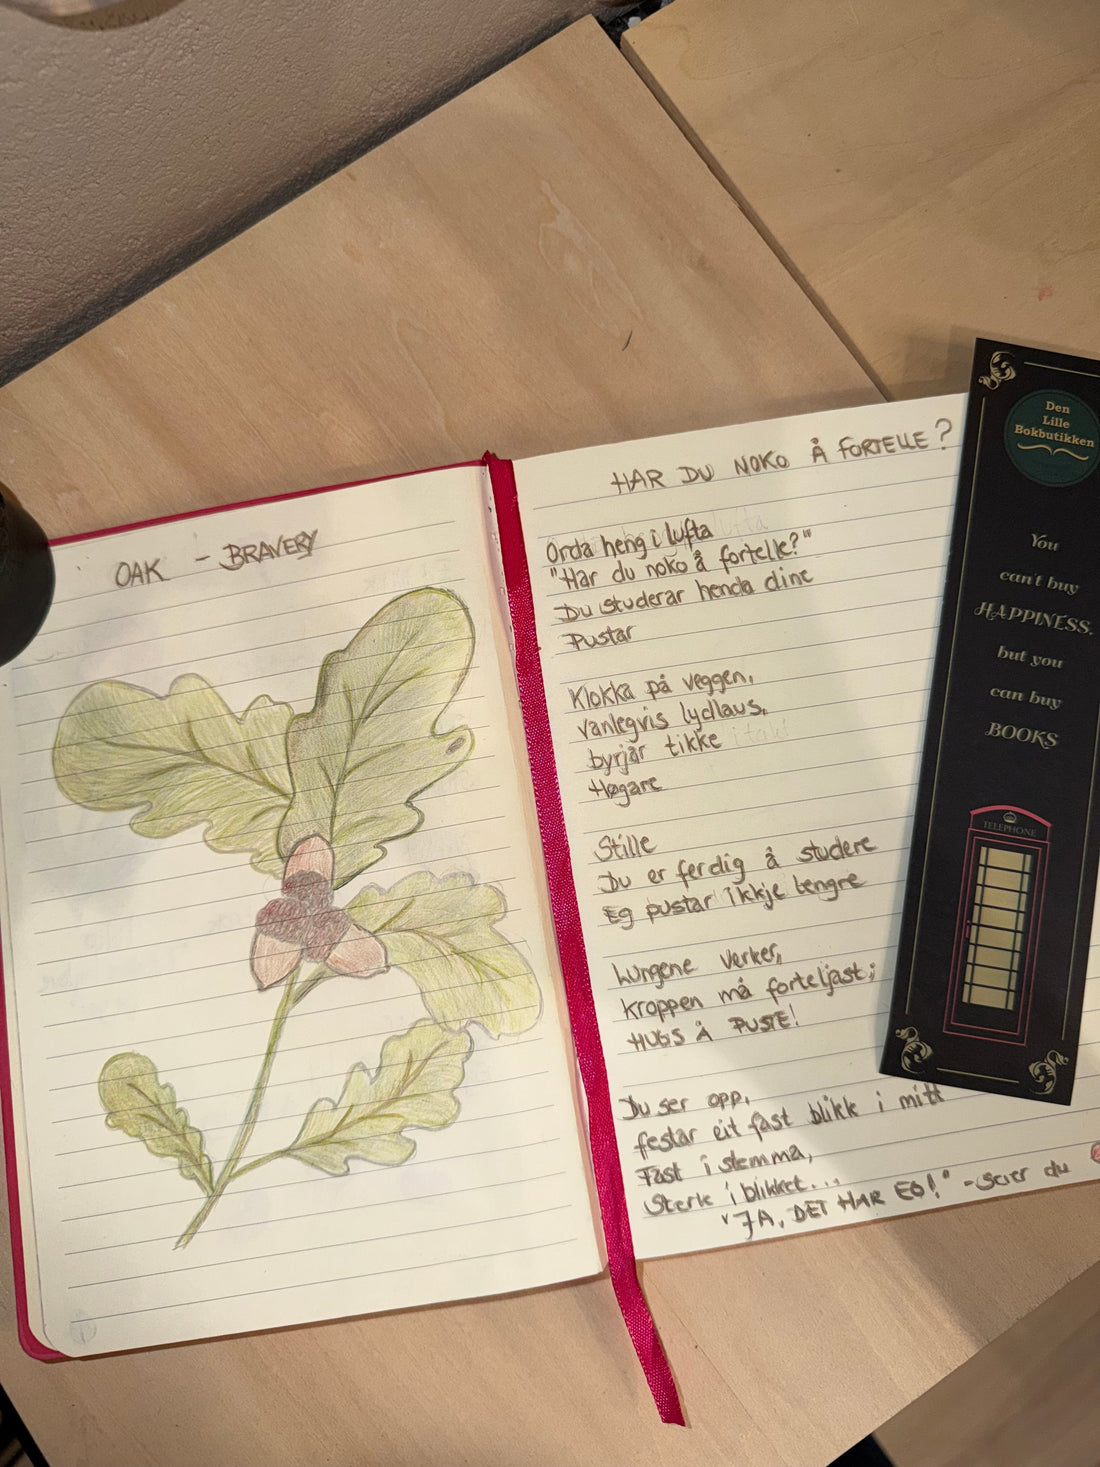 OAK - BRAVERY
HAR DU NOKO Å FORTELLE?
Orda heng i lufta
"Har du noko å fortelle?"
Du studerar henda dine
Pustar
Klokka på veggen,
vanlegvis lydlaus,
byrjar tikke
Høgare
Stille
Du er ferdig å studere
Eg pustar ikkje lengre
Lungene verker,
kroppen må forteljast;
HUGS Å PUSTE!
Du ser opp,
festar eit fast blikk i mitt
Fast i stemma,
Sterk i blikket...
"JA, DET HAR EG!" - seier du
Den
Lille
Bokbutikken
You
can't buy
HAPPINESS,
but you
can buy
BOOKS
TELEPHONE